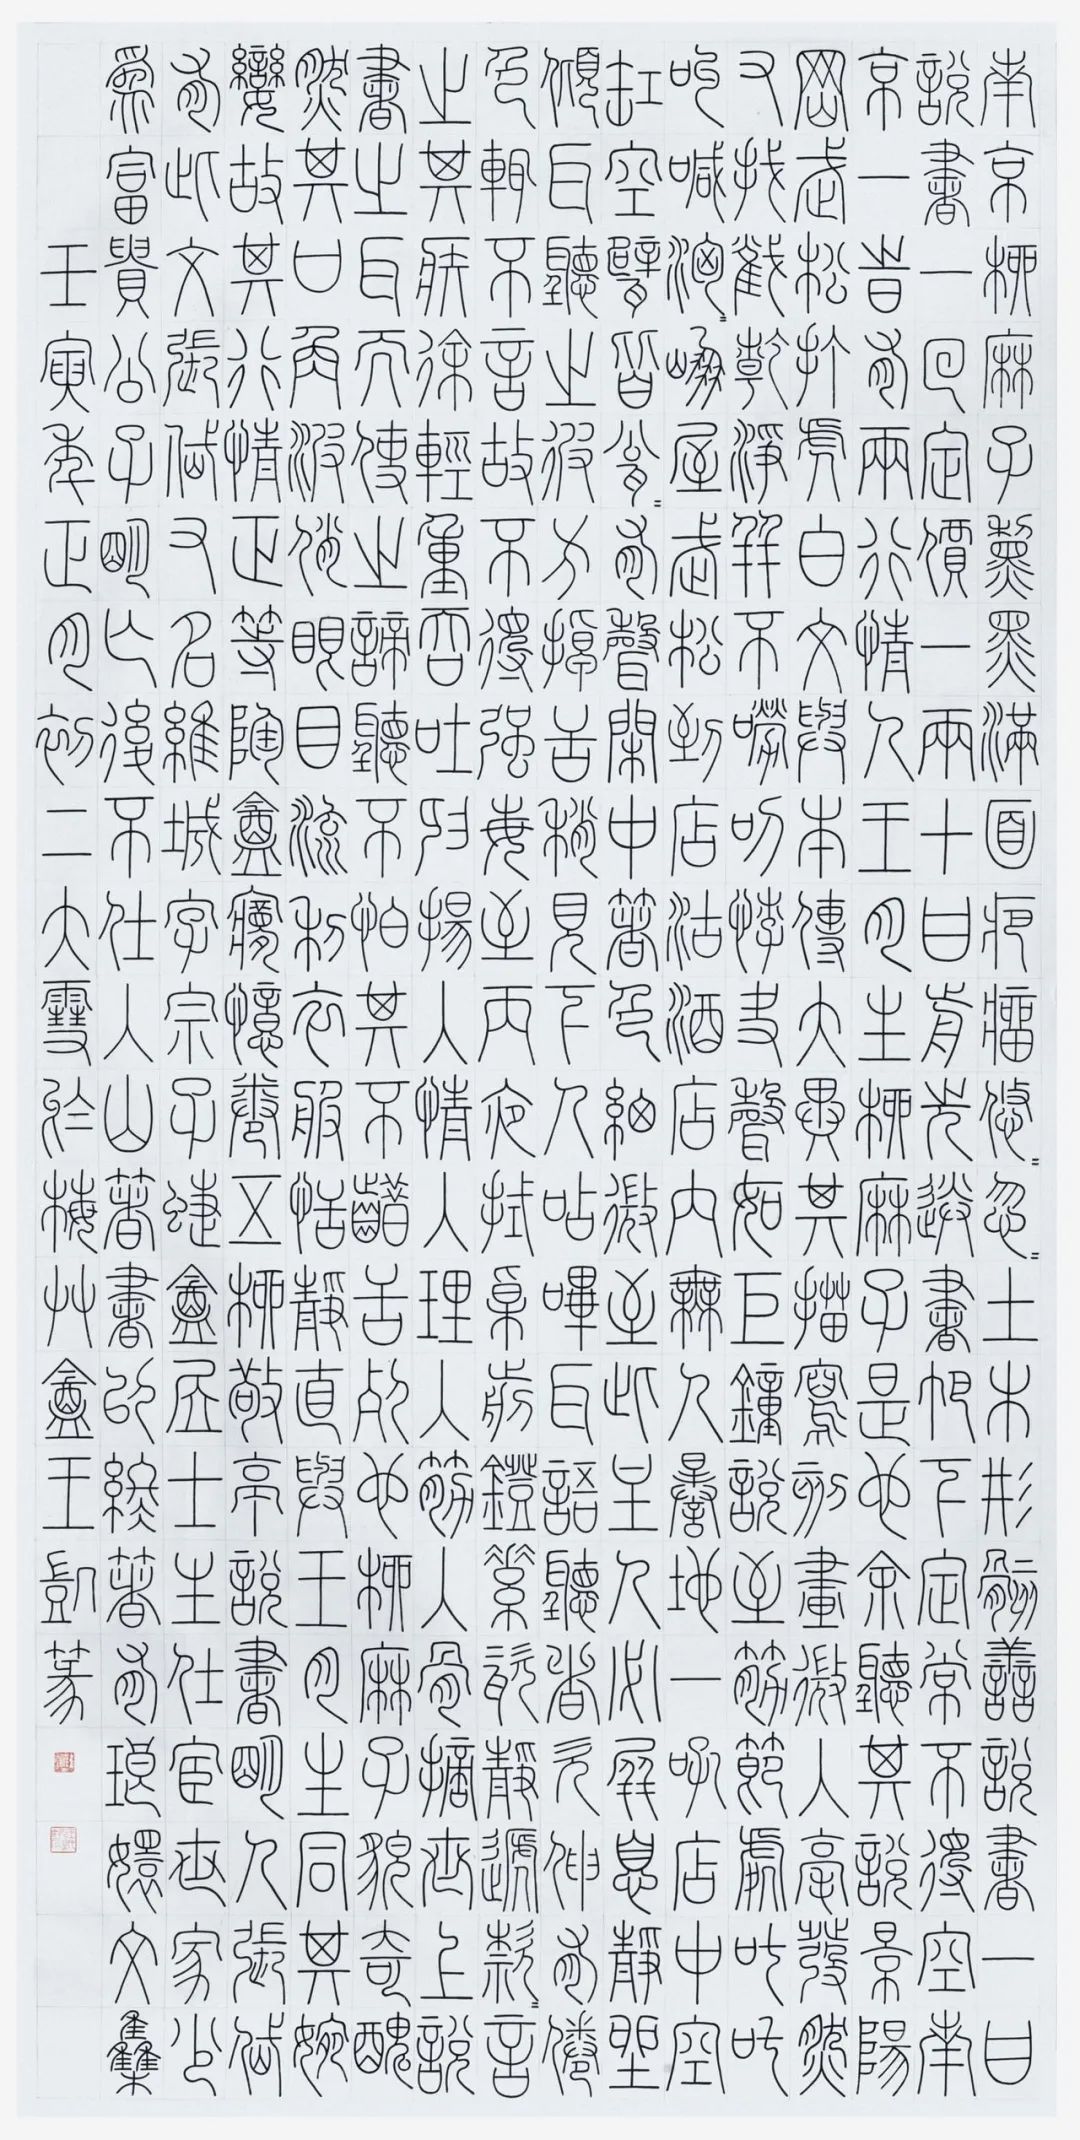 南京柳麻子黧黑滿面疤癗悠=忽=土木形骸善說書一日
說書一回定價一兩十日前先送書帕下定常不得空南
京一時有兩行情人王月生柳麻子是也余聽其說景陽
岡武松打虎白文與本傳大異其描寫刻畫微入毫髮然
又找截乾淨并不嘮叨悖夬聲如巨鐘說至筋節處叱吒
叫喊洶=崩屋武松到店沽酒店內無人暴地一吼店中空
缸空甓皆瓮=有聲閒中著色細微至此主人必屏息靜坐
傾耳聽之彼方掉舌稍見下人呫嗶耳語聽者欠伸有倦
色輒不言故不得強每至丙夜拭桌剪燈素瓷靜遞款=言
止其疾徐輕重吞吐抑揚入情入理入筋入骨摘世上說
書之耳而使之諦聽不怕其不齰舌死也柳麻子貌奇醜
然其口角波俏眼目流利衣服恬靜直與王月生同其婉
孌故其行情正等陶盦夢憶卷五柳敬亭說書明人張岱
有此文張岱又名維城字宗子蝶盦居士生仕宦世家少
為富貴公子明亡後不仕入山著書以終著有琅嬛文集
壬寅年正月初二大雪於梅艸盦王凱篆